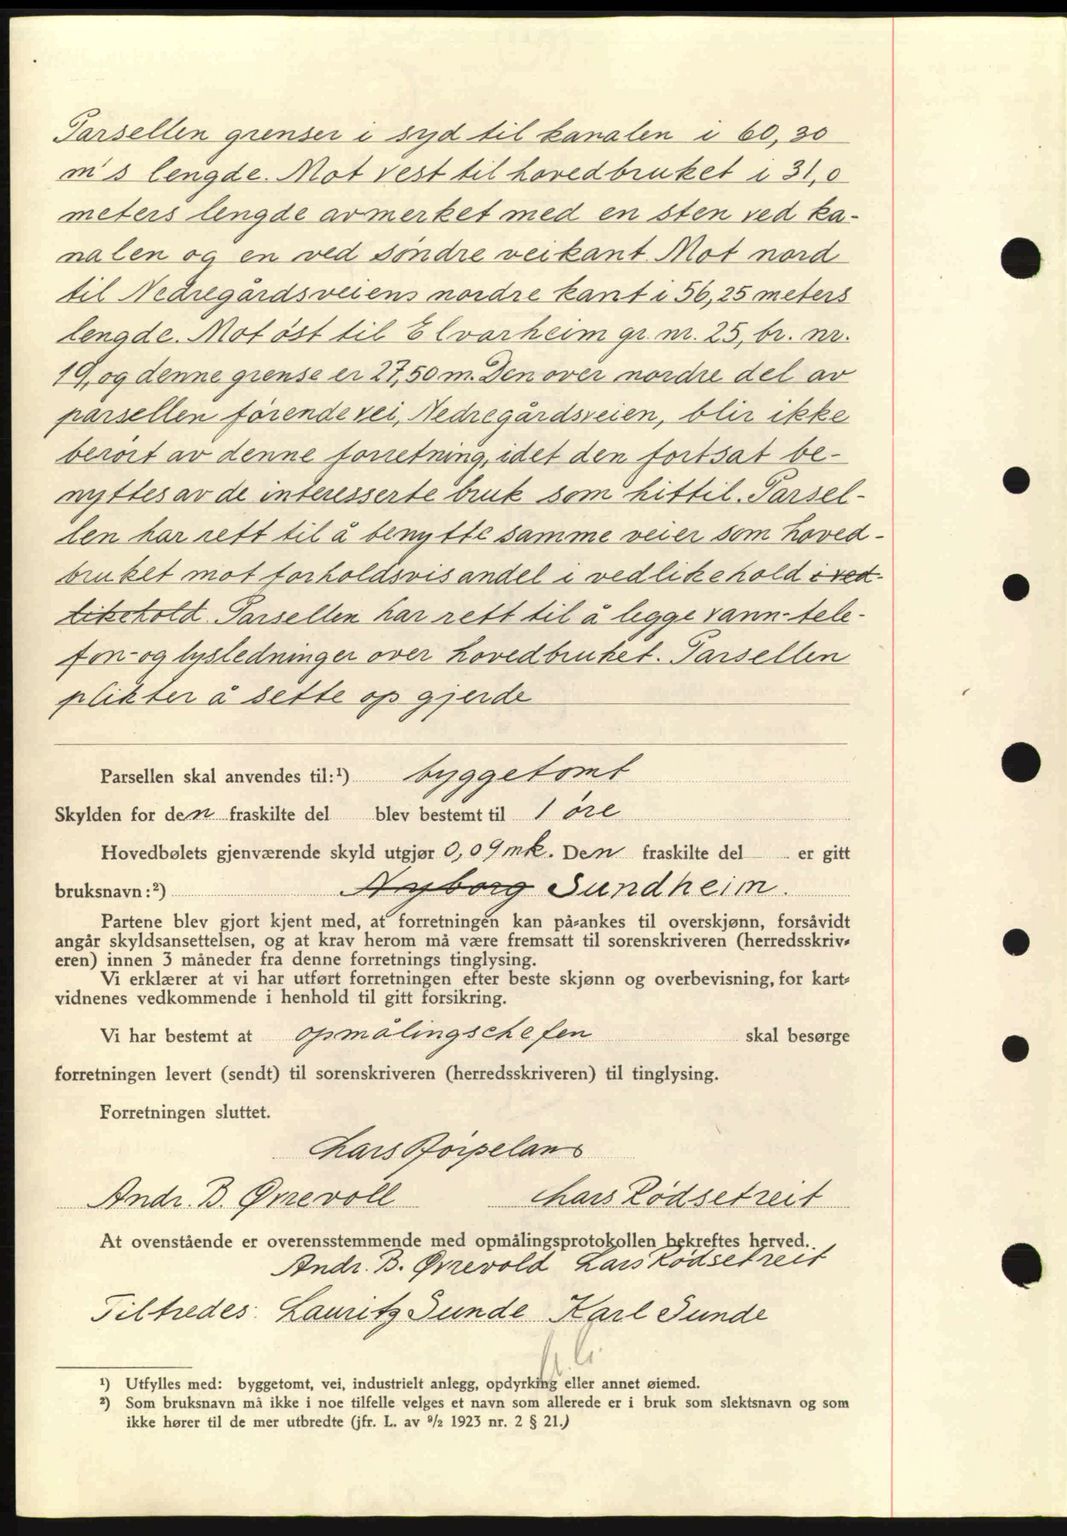 Parsellen grenser i syd til kanalen i 60,30
m's lengde. Mot vest til hovedbruket i 31,0
meters lengde avmerket med en sten ved ka-
nalen og en ved søndre veikant. Mot nord
til Nedregårdsveiens nordre kant i 56,25 meters
lengde. Mot øst til Elvarheim gr. nr. 25, br. nr.
19, og denne grense er 27,50 m. Den over nordre del av
parsellen førende vei, Nedregårdsveien, blir ikke
berørt av denne forretning, idet den fortsat be-
nyttes av de interesserte bruk som hittil. Parsel-
len har rett til å benytte samme veier som hoved-
bruket mot forholdsvis andel i vedlikehold i ved-
likehold. Parsellen har rett til å legge vann-tele-
fon- og lysledninger over hovedbruket. Parsellen
plikter å sette op gjerde
Parsellen skal anvendes til:¹) byggetomt
Skylden for den fraskilte del blev bestemt til 1 øre
Hovedbølets gjenværende skyld utgjør 0,09 mk. Den fraskilte del er gitt
bruksnavn:²) Nyborg Sundheim.
Partene blev gjort kjent med, at forretningen kan på-ankes til overskjønn, forsåvidt
angår skyldsansettelsen, og at krav herom må være fremsatt til sorenskriveren (herredsskriv-
eren) innen 3 måneder fra denne forretnings tinglysing.
Vi erklærer at vi har utført forretningen efter beste skjønn og overbevisning, for kart-
vidnenes vedkommende i henhold til gitt forsikring.
Vi har bestemt at opmålingschefen skal besørge
forretningen levert (sendt) til sorenskriveren (herredsskriveren) til tinglysing.
Forretningen sluttet.
Lars Rørpeland
Andr. B. Ørrevoll Lars Rødsetreit
At ovenstående er overensstemmende med opmålingsprotokollen bekreftes herved.
Andr. B. Ørrevold Lars Rødsetreit
Tiltredes: Lauritz Sunde Karl Sunde
¹) Utfylles med: byggetomt, vei, industrielt anlegg, opdyrking eller annet øiemed.
²) Som bruksnavn må ikke i noe tilfelle velges et navn som allerede er i bruk som slektsnavn og som
ikke hører til de mer utbredte (jfr. L. av ⁹/₂ 1923 nr. 2 § 21.)